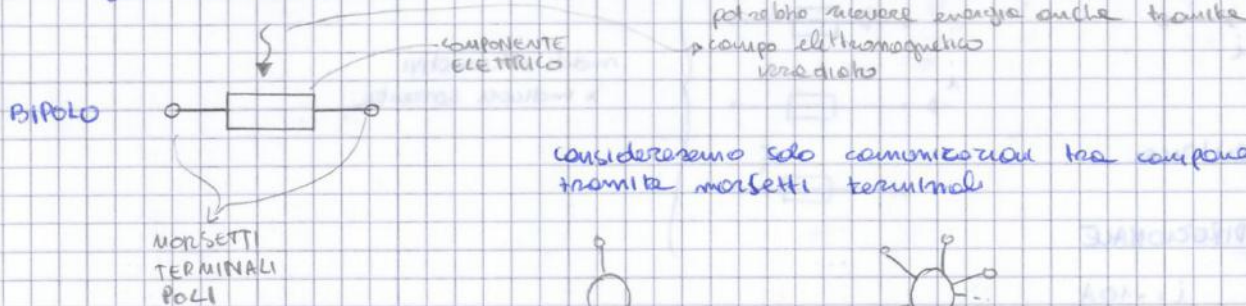 potrebbe ricevere energia anche tramite
campo elettromagnetico
irradiato
COMPONENTE
ELETTRICO
BIPOLO
considereremo solo comunicazioni tra compone
tramite morsetti terminali
MORSETTI
TERMINALI
POLI